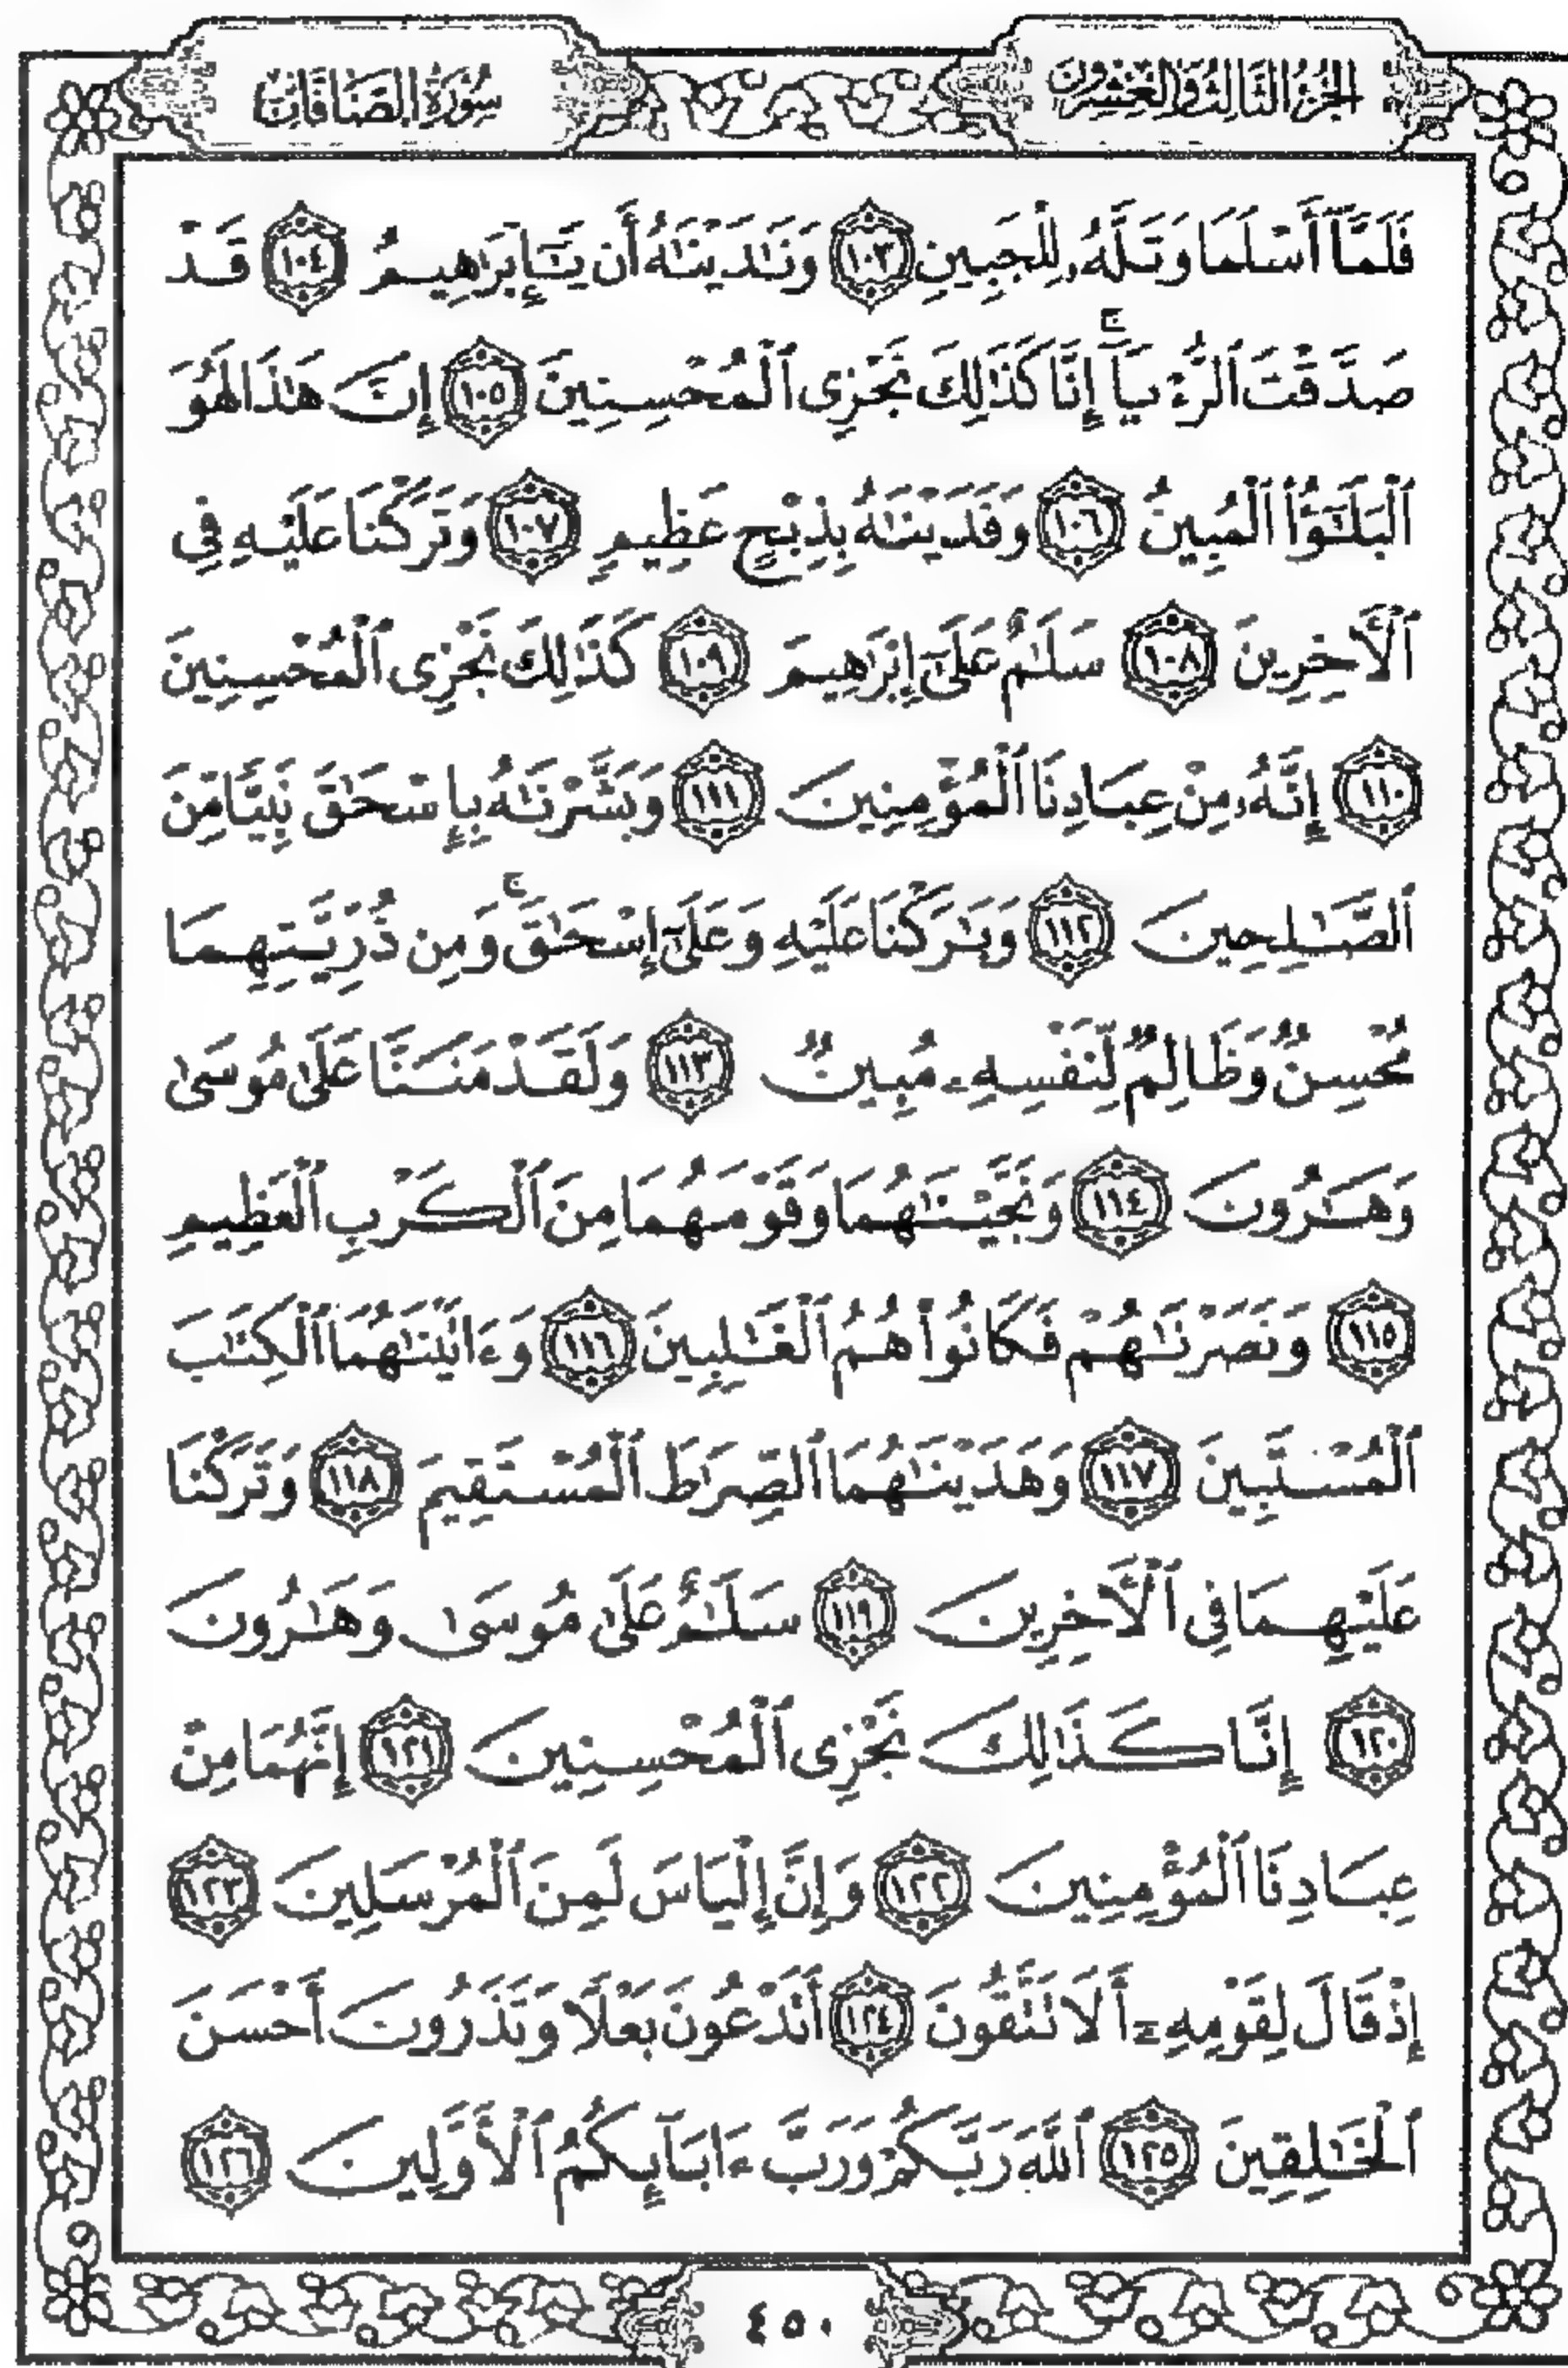 الجزء الثالث والعشرون
سورة الصافات
فَلَمَّآ أَسْلَمَا وَتَلَّهُۥ لِلْجَبِينِ ١٠٣ وَنَٰدَيْنَٰهُ أَن يَٰٓإِبْرَٰهِيمُ ١٠٤ قَدْ
صَدَّقْتَ ٱلرُّءْيَآ ۚ إِنَّا كَذَٰلِكَ نَجْزِى ٱلْمُحْسِنِينَ ١٠٥ إِنَّ هَٰذَا لَهُوَ
ٱلْبَلَٰٓؤُا۟ ٱلْمُبِينُ ١٠٦ وَفَدَيْنَٰهُ بِذِبْحٍ عَظِيمٍ ١٠٧ وَتَرَكْنَا عَلَيْهِ فِى
ٱلْأَخِرِينَ ١٠٨ سَلَٰمٌ عَلَىٰٓ إِبْرَٰهِيمَ ١٠٩ كَذَٰلِكَ نَجْزِى ٱلْمُحْسِنِينَ
١١٠ إِنَّهُۥ مِنْ عِبَادِنَا ٱلْمُؤْمِنِينَ ١١١ وَبَشَّرْنَٰهُ بِإِسْحَٰقَ نَبِيًّا مِّنَ
ٱلصَّٰلِحِينَ ١١٢ وَبَٰرَكْنَا عَلَيْهِ وَعَلَىٰٓ إِسْحَٰقَ ۚ وَمِن ذُرِّيَّتِهِمَا
مُحْسِنٌ وَظَالِمٌ لِّنَفْسِهِۦ مُبِينٌ ١١٣ وَلَقَدْ مَنَنَّا عَلَىٰ مُوسَىٰ
وَهَٰرُونَ ١١٤ وَنَجَّيْنَٰهُمَا وَقَوْمَهُمَا مِنَ ٱلْكَرْبِ ٱلْعَظِيمِ
١١٥ وَنَصَرْنَٰهُمْ فَكَانُوا۟ هُمُ ٱلْغَٰلِبِينَ ١١٦ وَءَاتَيْنَٰهُمَا ٱلْكِتَٰبَ
ٱلْمُسْتَبِينَ ١١٧ وَهَدَيْنَٰهُمَا ٱلصِّرَٰطَ ٱلْمُسْتَقِيمَ ١١٨ وَتَرَكْنَا
عَلَيْهِمَا فِى ٱلْأَخِرِينَ ١١٩ سَلَٰمٌ عَلَىٰ مُوسَىٰ وَهَٰرُونَ
١٢٠ إِنَّا كَذَٰلِكَ نَجْزِى ٱلْمُحْسِنِينَ ١٢١ إِنَّهُمَا مِنْ
عِبَادِنَا ٱلْمُؤْمِنِينَ ١٢٢ وَإِنَّ إِلْيَاسَ لَمِنَ ٱلْمُرْسَلِينَ ١٢٣
إِذْ قَالَ لِقَوْمِهِۦٓ أَلَا تَتَّقُونَ ١٢٤ أَتَدْعُونَ بَعْلًا وَتَذَرُونَ أَحْسَنَ
ٱلْخَٰلِقِينَ ١٢٥ ٱللَّهَ رَبَّكُمْ وَرَبَّ ءَابَآئِكُمُ ٱلْأَوَّلِينَ ١٢٦
٤٥٠